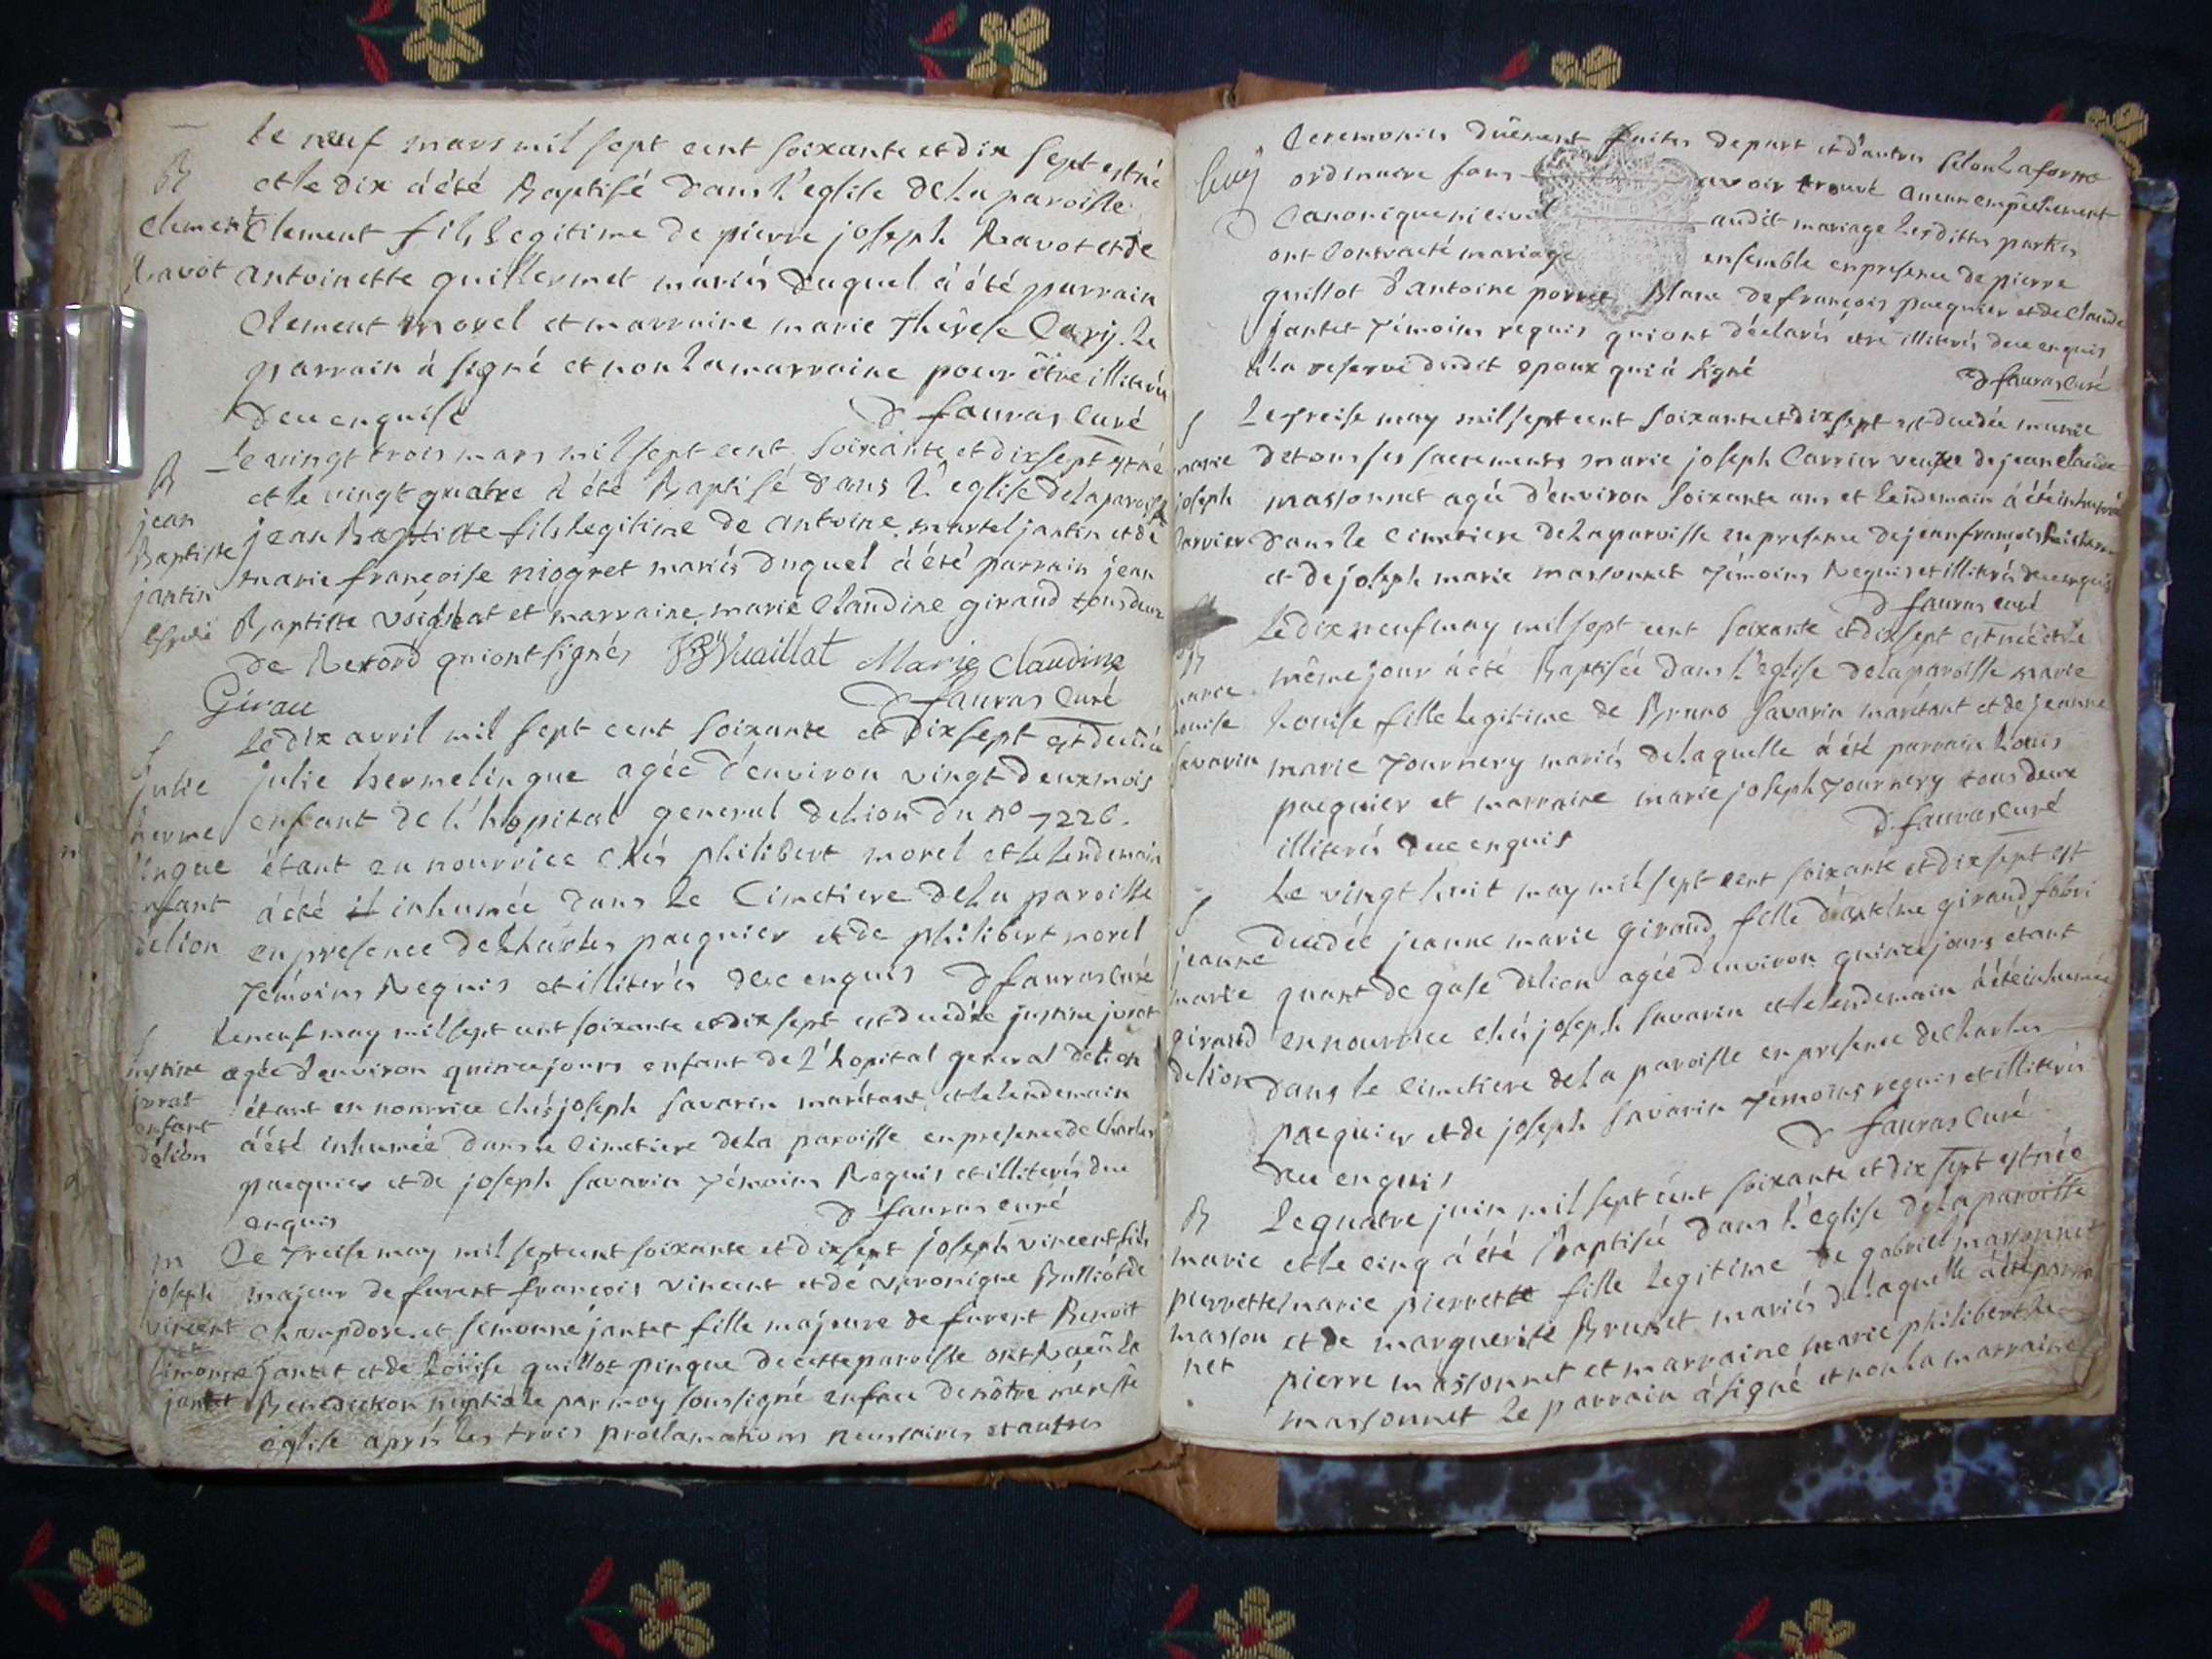 le neuf mars mil sept cent soixante et dix sept est né
B et le dix à été Baptisé dans l'eglise de la paroisse
clement Clement fils legitime de pierre joseph Ravot et de
Ravot antoinette guillermet mariés duquel à été parrain
Clement morel et marraine marie Thérese Cary. le
parrain à signé et non la marraine pour être illiterée
de ce enquise D fauras Curé
Le vingt trois mars mil sept cent soixante et dix sept est né
B et le vingt quatre à été Baptisé dans l'eglise de la paroisse
jean jean Baptiste fils legitime de antoine martel jantin et de
Baptiste marie françoise niogret mariés duquel à été parrain jean
jantin Baptiste et marraine marie Claudine giraud tous deux
de Rexord qui ont signés JB Vuaillat Marie Claudine
Girau D fauras Curé
Le dix avril mil sept cent soixante et dix sept est decedée
julie julie hermelingue agée d'environ vingt deux mois
herme enfant de l'hôpital general de lion du no 7226.
lingue étant en nourrice chés philibert morel et le lendemain
enfant à été inhumée dans le Cimetiere de la paroisse
de lion en presence de Charles pacquier et de philibert morel
Témoins Requis et illiterés de ce enquis D fauras Curé
Le neuf may mil sept cent soixante et dix sept est decedée justine jurat
justine agée d'environ quinze jours enfant de l'hopital general de lion
jurat étant en nourrice chés joseph savarin maritant et le lendemain
enfant à été inhumée dans le Cimetiere de la paroisse en presence de Charles
de lion pacquier et de joseph savarin Témoins Requis et illiterés de ce
enquis D fauras curé
m Le Treise may mil sept cent soixante et dix sept joseph vincent fils
joseph majeur de furent françois vincent et de veronique Bulliot de
vincent Champdore et simonne jantet fille majeure de furent Benoit
simonne jantet et de Loüise guillot pingue de cette paroisse ont Reçeû la
jantet Benediction nuptiale par moy soussigné en face de nôtre mere ste
eglise aprés les trois proclamations necessaires et autres
Ceremonies dûëment faites de part et d'autres selon la forme
ordinaire sans avoir trouvé aucun empechement
Canonique ni civil au dit mariage les dittes parties
ont Contracté mariage ensemble en presence de pierre
guillot d'antoine perret Blanc de françois pacquier et de Claude
jantet Témoins requis qui ont déclarés etre illiterés de ce enquis
à la reserve dudit epoux qui à signé D fauras Curé
Le Treise may mil sept cent soixante et dix sept est decedée munie
marie de tous ses sacrements marie joseph Carrier veuve de jean claude
joseph massonnet agée d'environ soixante ans et lendemain à été inhumée
Carrier dans le Cimetiere de la paroisse en presence de jean françois
et de joseph marie massonnet Témoins Requis et illiterés de ce enquis
D fauras curé
Le dix neuf may mil sept cent soixante et dix sept est née et le
B même jour à été Baptisée dans l'eglise de la paroisse marie
marie Louise fille legitime de Bruno savarin maritant et de jeanne
louise marie Tournery mariés de laquelle à été parrain Louis
savarin pacquier et marraine marie joseph Tournery tous deux
illiterés de ce enquis D fauras curé
Le vingt huit may mil sept cent soixante et dix sept est
decedée jeanne marie giraud fille d'antelme giraud fabri
jeanne quant de gase de lion agée d'environ quinze jours étant
marie en nourrice chés joseph savarin et le lendemain à été inhumée
giraud dans le Cimetiere de la paroisse en presence de Charles
de lion pacquier et de joseph savarin Témoins requis et illiterés
de ce enquis D fauras Curé
B Le quatre juin mil sept cent soixante et dix sept est née
marie et le cinq à été Baptisée dans l'eglise de la paroisse
pierrette marie pierrette fille legitime de gabriel massonnet
masson et de marguerite Brunet mariés de laquelle à été parrain
net pierre massonnet et marraine marie philiberthe
massonnet Le parrain à signé et non la marraine